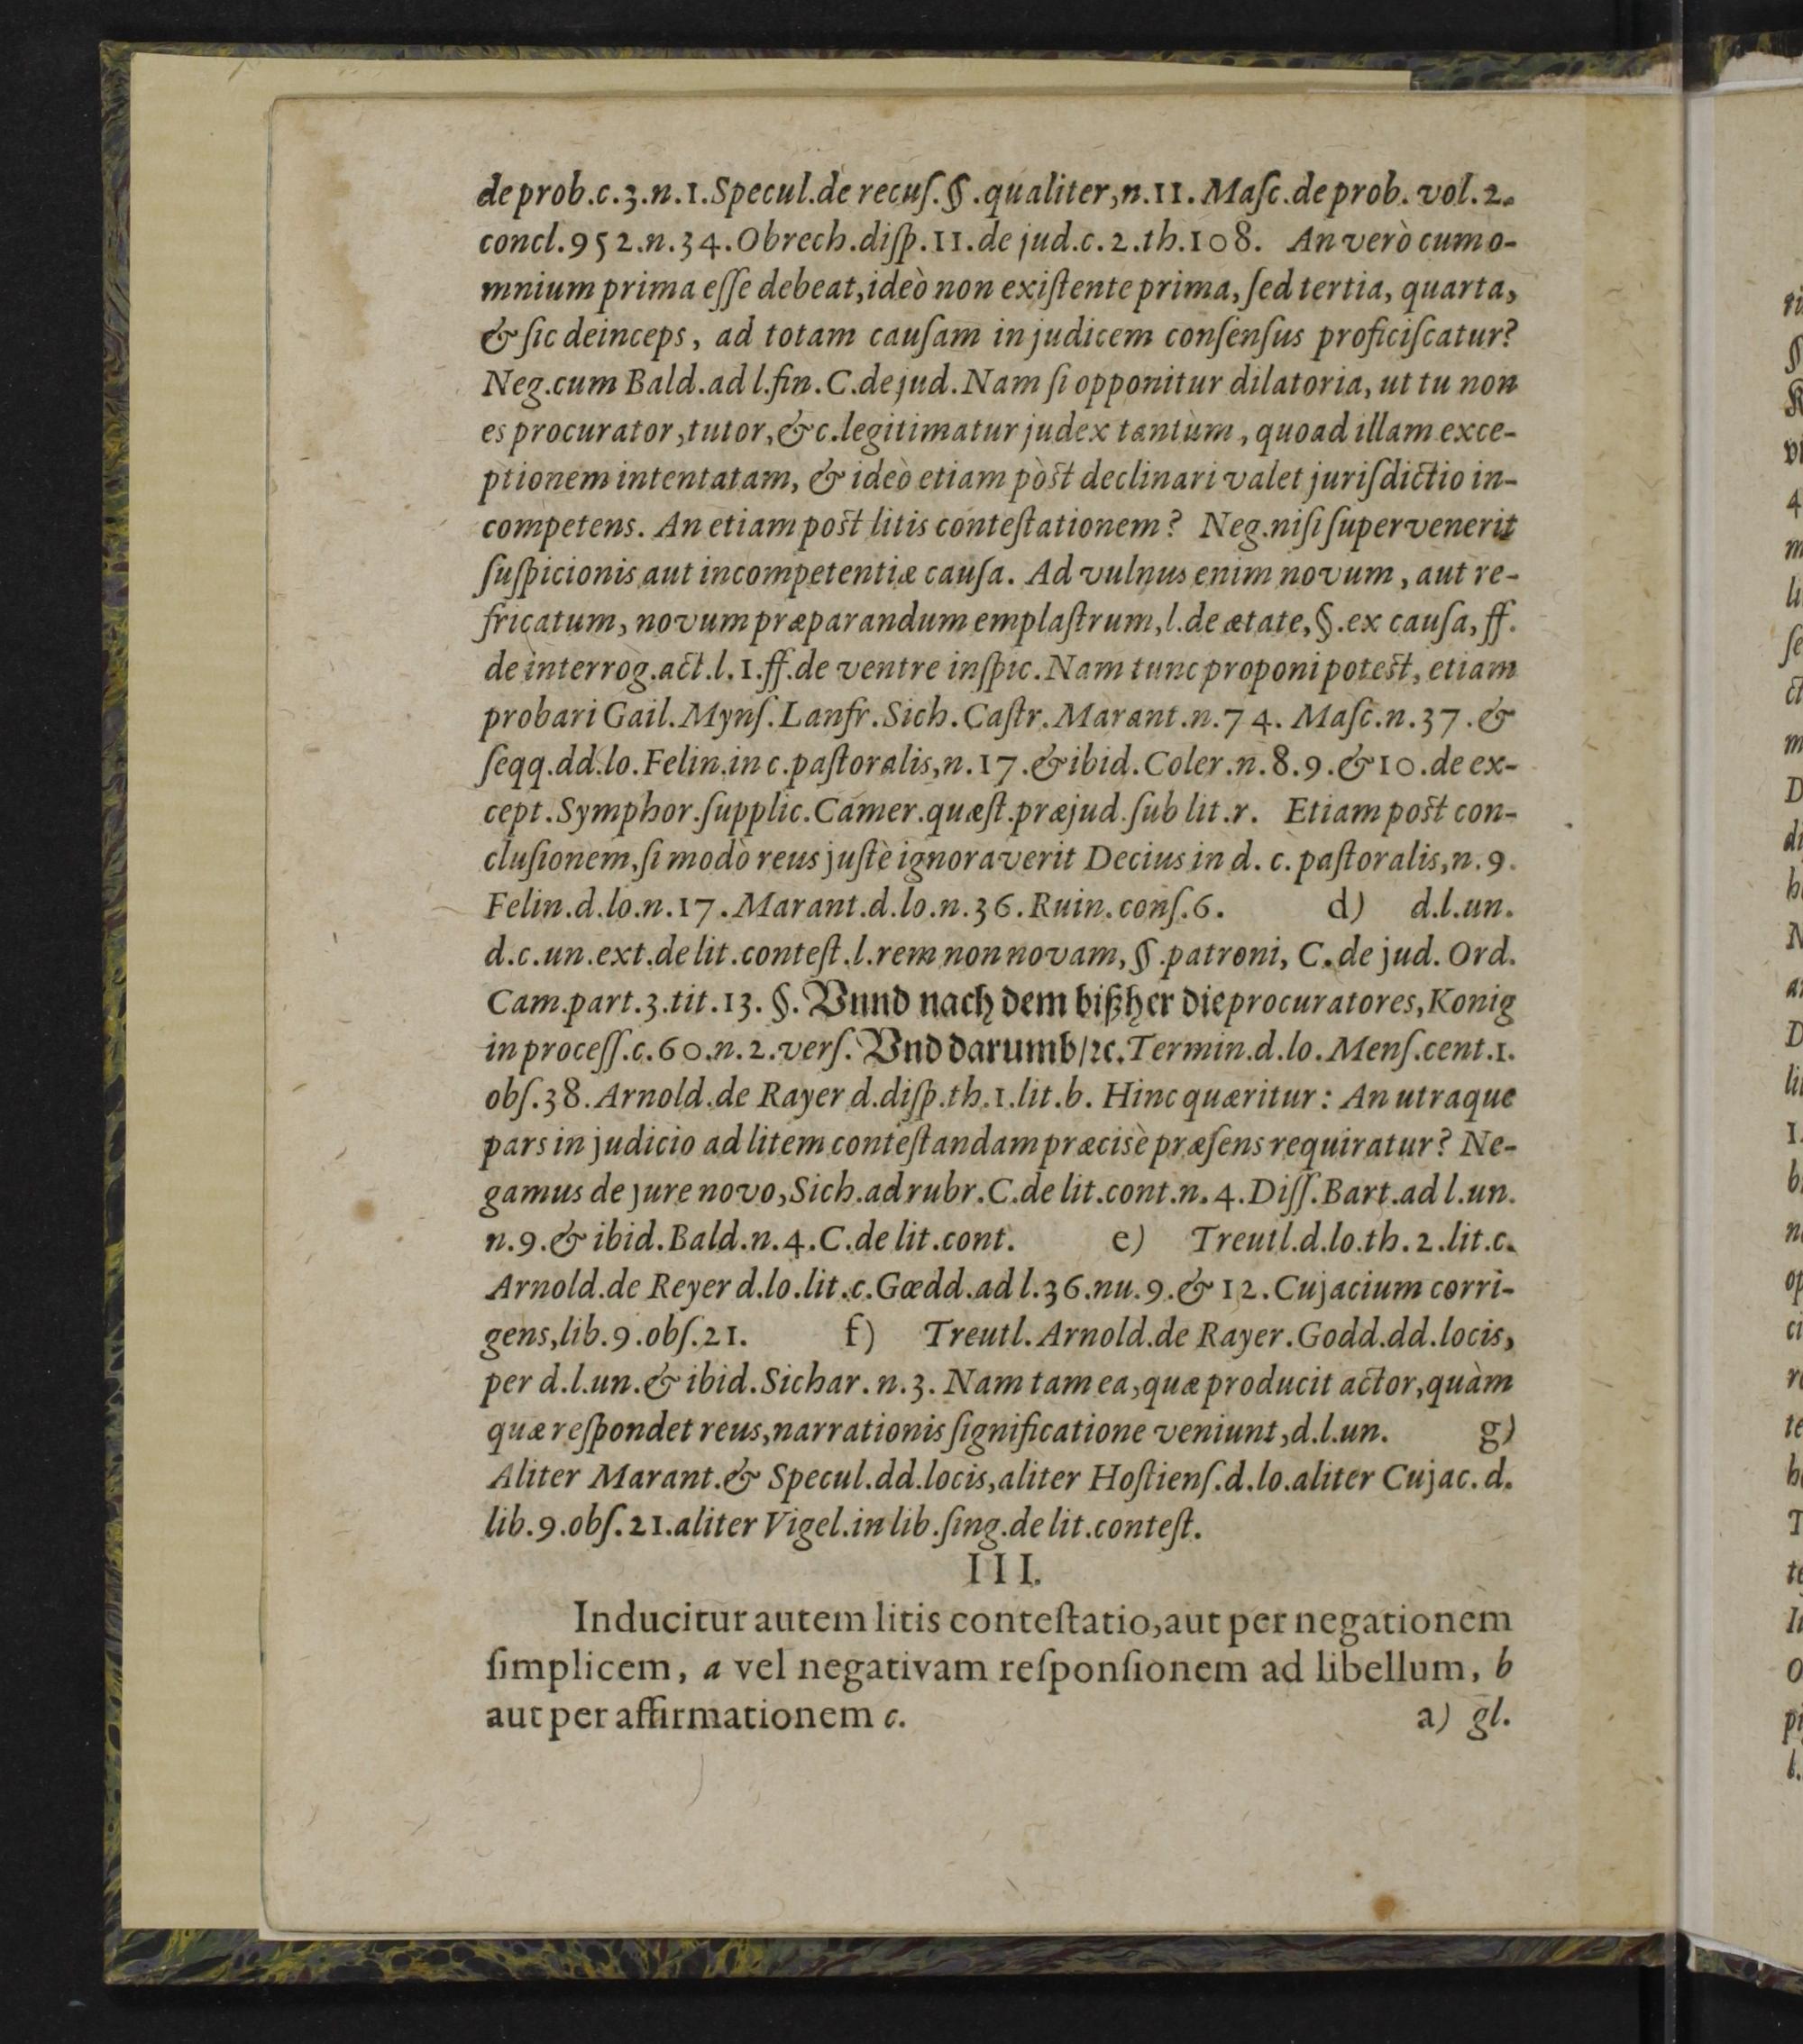 de prob.c.3.n.1.Specul.de recuſ.§.qualiter,n.11.Maſc.de prob.vol.2.
concl.952.n.34.Obrech.diſp.11.de jud.c.2.th.108. An verò cum o-
mnium prima eſſe debeat,ideò non exiſtente prima, ſed tertia, quarta,
& ſic deinceps, ad totam cauſam in judicem conſenſus proficiſcatur?
Neg.cum Bald.ad l.fin.C.de jud.Nam ſi opponitur dilatoria, ut tu non
es procurator,tutor,&c.legitimatur judex tantùm, quoad illam exce-
ptionem intentatam, & ideò etiam pòſt declinari valet juriſdictio in-
competens. An etiam poſt litis conteſtationem? Neg.niſi ſupervenerit
ſuſpicionis aut incompetentiæ cauſa. Ad vulnus enim novum, aut re-
fricatum, novum præparandum emplaſtrum,l.de ætate,§.ex cauſa,ff.
de interrog.act.l.1.ff.de ventre inſpic.Nam tunc proponi poteſt, etiam
probari Gail.Mynſ.Lanfr.Sich.Caſtr.Marant.n.74. Maſc.n.37.&
ſeqq.dd.lo.Felin.in c.paſtoralis,n.17.& ibid.Coler.n.8.9.&10.de ex-
cept.Symphor.ſupplic.Camer.quæſt.præjud.ſub lit.r. Etiam poſt con-
cluſionem,ſi modò reus juſtè ignoraverit Decius in d. c. paſtoralis,n.9.
Felin.d.lo.n.17.Marant.d.lo.n.36.Ruin.conſ.6. d) d.l.un.
d.c.un.ext.de lit.conteſt.l.rem non novam,§.patroni, C.de jud. Ord.
Cam.part.3.tit.13. §. Vnnd nach dem bißher die procuratores,Konig
in proceſſ.c.60.n.2.verſ. Vnd darumb/ꝛc.Termin.d.lo.Menſ.cent.1.
obſ.38.Arnold.de Rayer d.diſp.th.1.lit.b. Hinc quæritur: An utraque
pars in judicio ad litem conteſtandam præcisè præſens requiratur? Ne-
gamus de jure novo,Sich.ad rubr.C.de lit.cont.n.4.Diſſ.Bart.ad l.un.
n.9.& ibid.Bald.n.4.C.de lit.cont. e) Treutl.d.lo.th.2.lit.c.
Arnold.de Reyer d.lo.lit.c.Gœdd.ad l.36.nu.9.& 12.Cujacium corri-
gens,lib.9.obſ.21. f) Treutl.Arnold.de Rayer.Godd.dd.locis,
per d.l.un.& ibid.Sichar.n.3. Nam tam ea,quæ producit actor,quàm
quæ reſpondet reus,narrationis ſignificatione veniunt,d.l.un. g)
Aliter Marant.& Specul.dd.locis,aliter Hoſtienſ.d.lo.aliter Cujac.d.
lib.9.obſ.21.aliter Vigel.in lib.ſing.de lit.conteſt.
III.
Inducitur autem litis conteſtatio,aut per negationem
ſimplicem, a vel negativam reſponſionem ad libellum, b
aut per affirmationem c. a) gl.